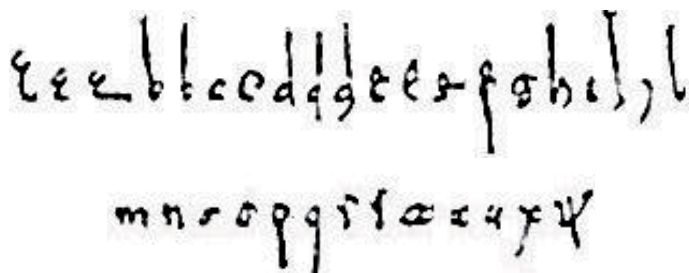 a a a b b c c d d d e e e f g h i i j l
m n o o p q r s t t u x y